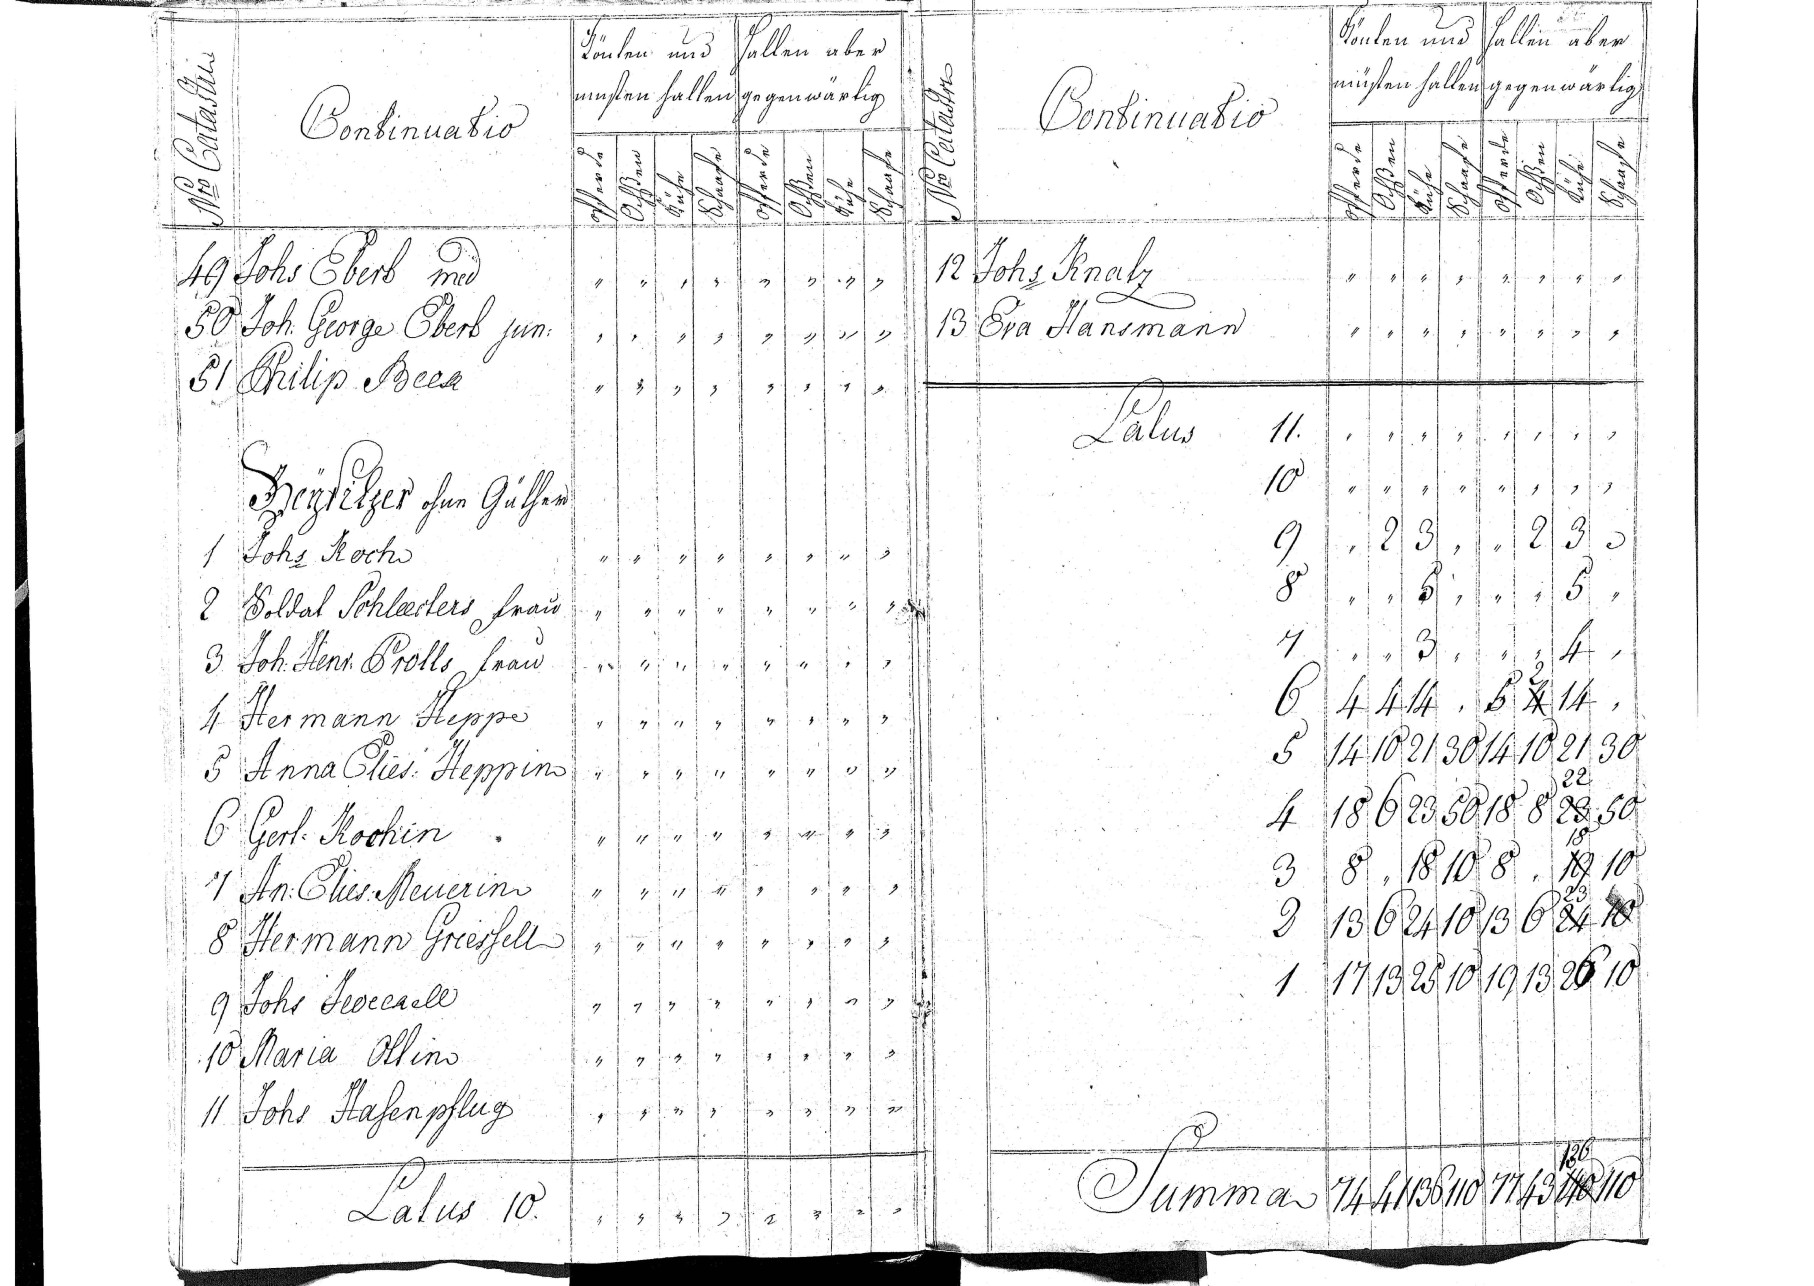 Nro Catastri
Continuatio
Könten und müsten halten
Halten aber gegenwärtig
Pferde Ochßen Kühe Schaafe Pferde Ochßen Kühe Schaafe
49 Johs Eberb med " " " " " " " "
50 Joh. George Eberb jun: " " " " " " " "
51 Philip " " " " " " " "
Beysitzer ohne Güther
1 Johs Koch " " " " " " " "
2 Soldat Frau " " " " " " " "
3 Joh. Henr. Prolls Frau " " " " " " " "
4 Hermann Heppe " " " " " " " "
5 Anna Elies: Heppin " " " " " " " "
6 Gert. Kochin " " " " " " " "
7 An: Elies. Meuerin " " " " " " " "
8 Hermann Griessell " " " " " " " "
9 Johs " " " " " " " "
10 Maria Ottin " " " " " " " "
11 Johs Hasenpflug " " " " " " " "
Latus 10. " " " " " " " "
Nro Catastri
Continuatio
Könten und müsten halten
Halten aber gegenwärtig
Pferde Ochßen Kühe Schaafe Pferde Ochßen Kühe Schaafe
12 Johs Knatz " " " " " " " "
13 Eva Hansmann " " " " " " " "
Latus 11. " " " " " " " "
10 " " " " " " " "
9 " 2 3 " " 2 3 "
8 " " 5 " " " 5 "
7 " " 3 " " " 4 "
2
6 4 4 14 " 5 4 14 "
5 14 10 21 30 14 10 21 30
22
4 18 6 23 50 18 8 23 50
18
3 8 " 18 10 8 " 19 10
23
2 13 6 24 10 13 6 24 10
1 17 13 25 10 19 13 26 10
136
Summa 74 41 136 110 77 43 140 110